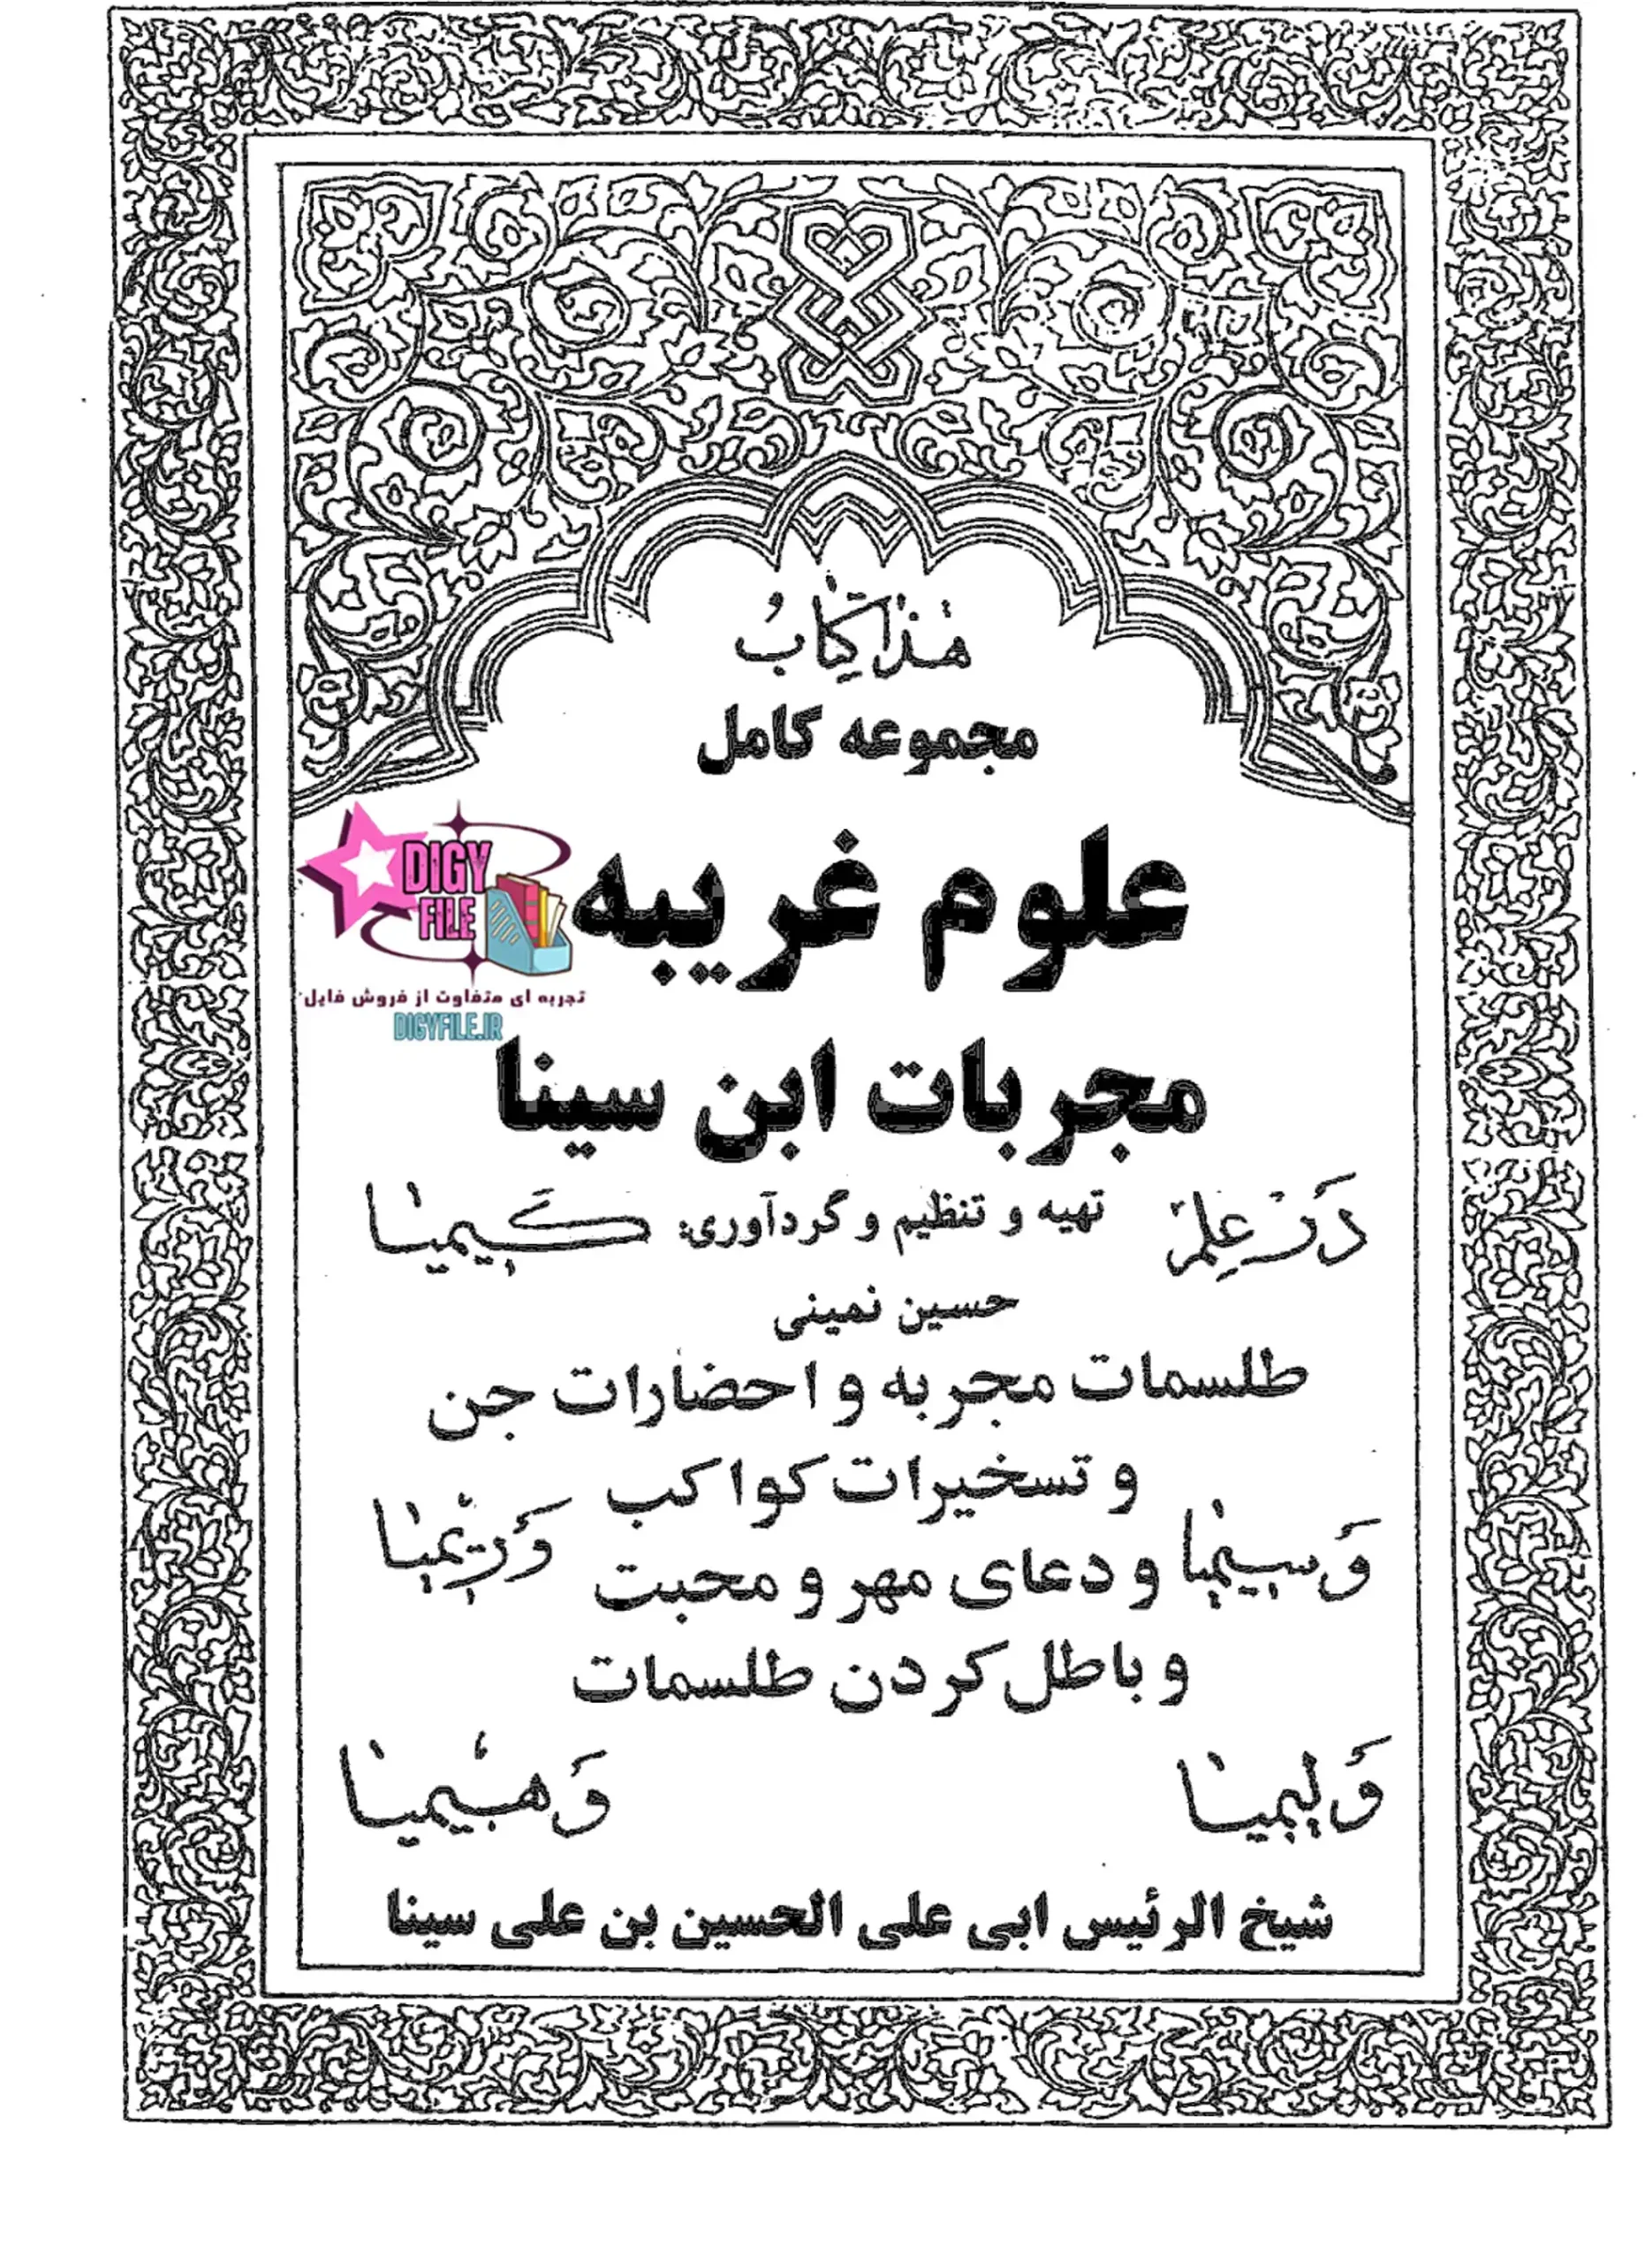 هذا كتاب
مجموعه کامل
علوم غریبه
DIGY
FILE
تجربه ای متفاوت از فروش فایل
DIGYFILE.IR
مجربات ابن سینا
در علم تهیه و تنظیم و گردآوری: کیمیا
حسین نمینی
طلسمات مجربه و احضارات جن
و تسخیرات کواکب
و سیمیا و دعای مهر و محبت و ریمیا
و باطل کردن طلسمات
و لیمیا و هیمیا
شیخ الرئیس ابی علی الحسین بن علی سینا